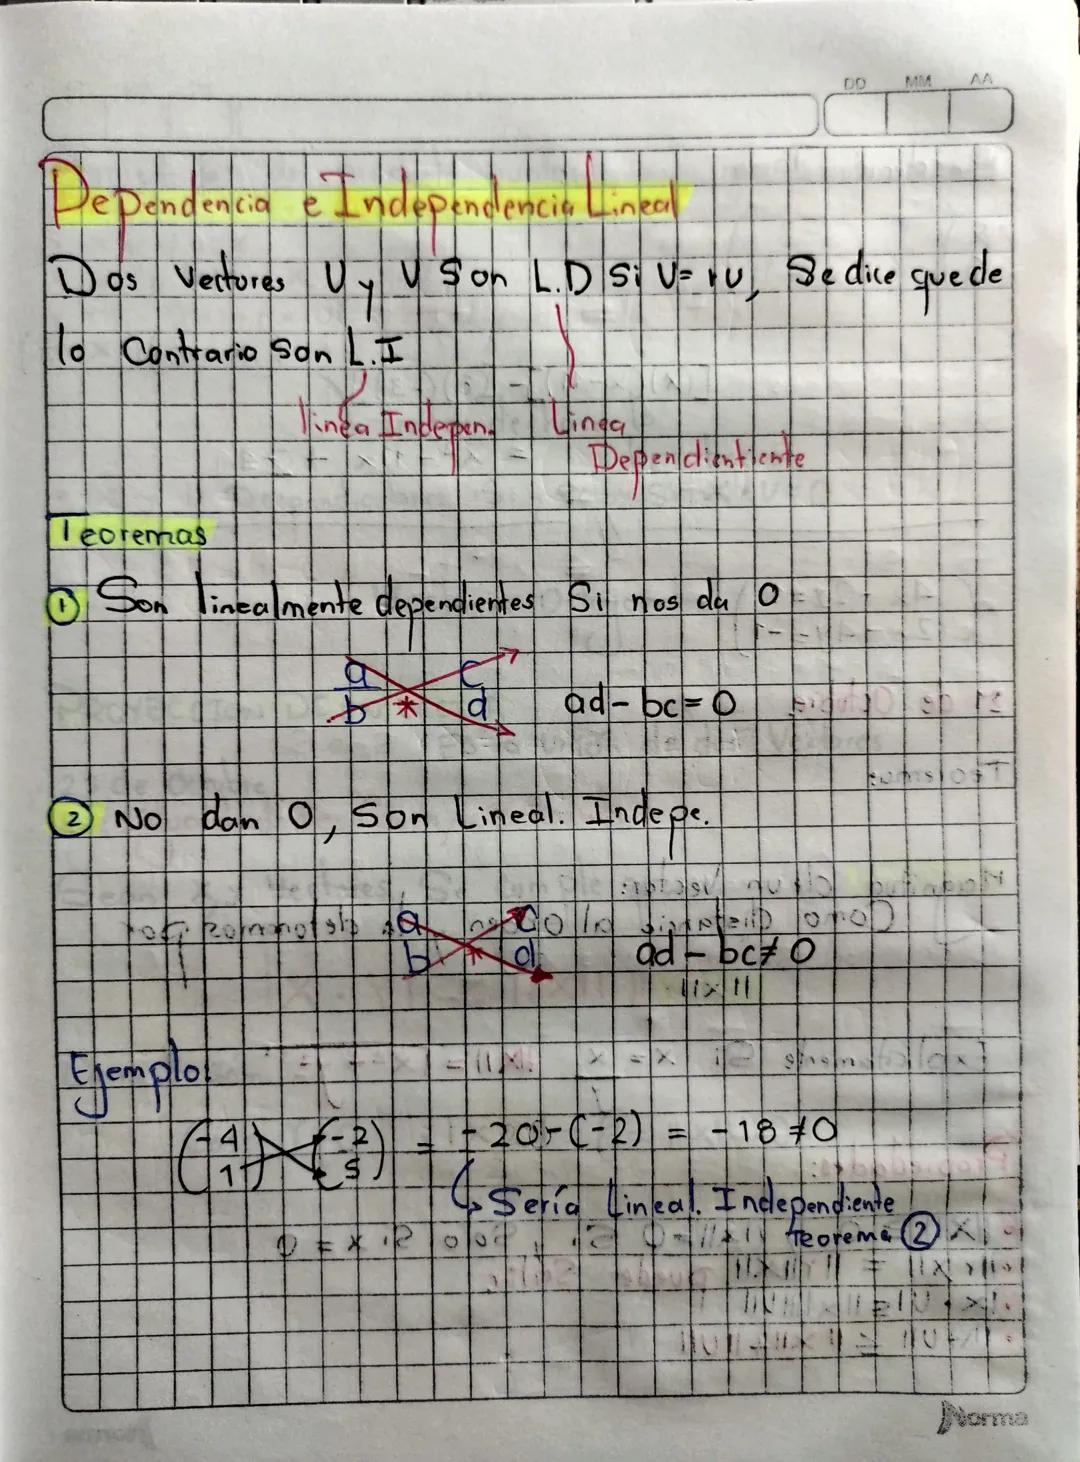 DD MM AA
Dependencia e Independencia Lineal
Dos Vectores U y V Son L.D Si V= rU, Se dice que de
lo Contrario Son L.I
linea Indepen. Linea
Dependientiente
Teoremas
① Son linealmente dependientes Si nos da 0
a c
b * d ad - bc = 0
② No dan 0, Son Lineal. Indepe.
a c
b * d ad - bc ≠ 0
Ejemplo
(-4) (-2) = -20 - (-2) = -18 ≠ 0
1 5
Sería Lineal. Independiente
teorema ②
Norma